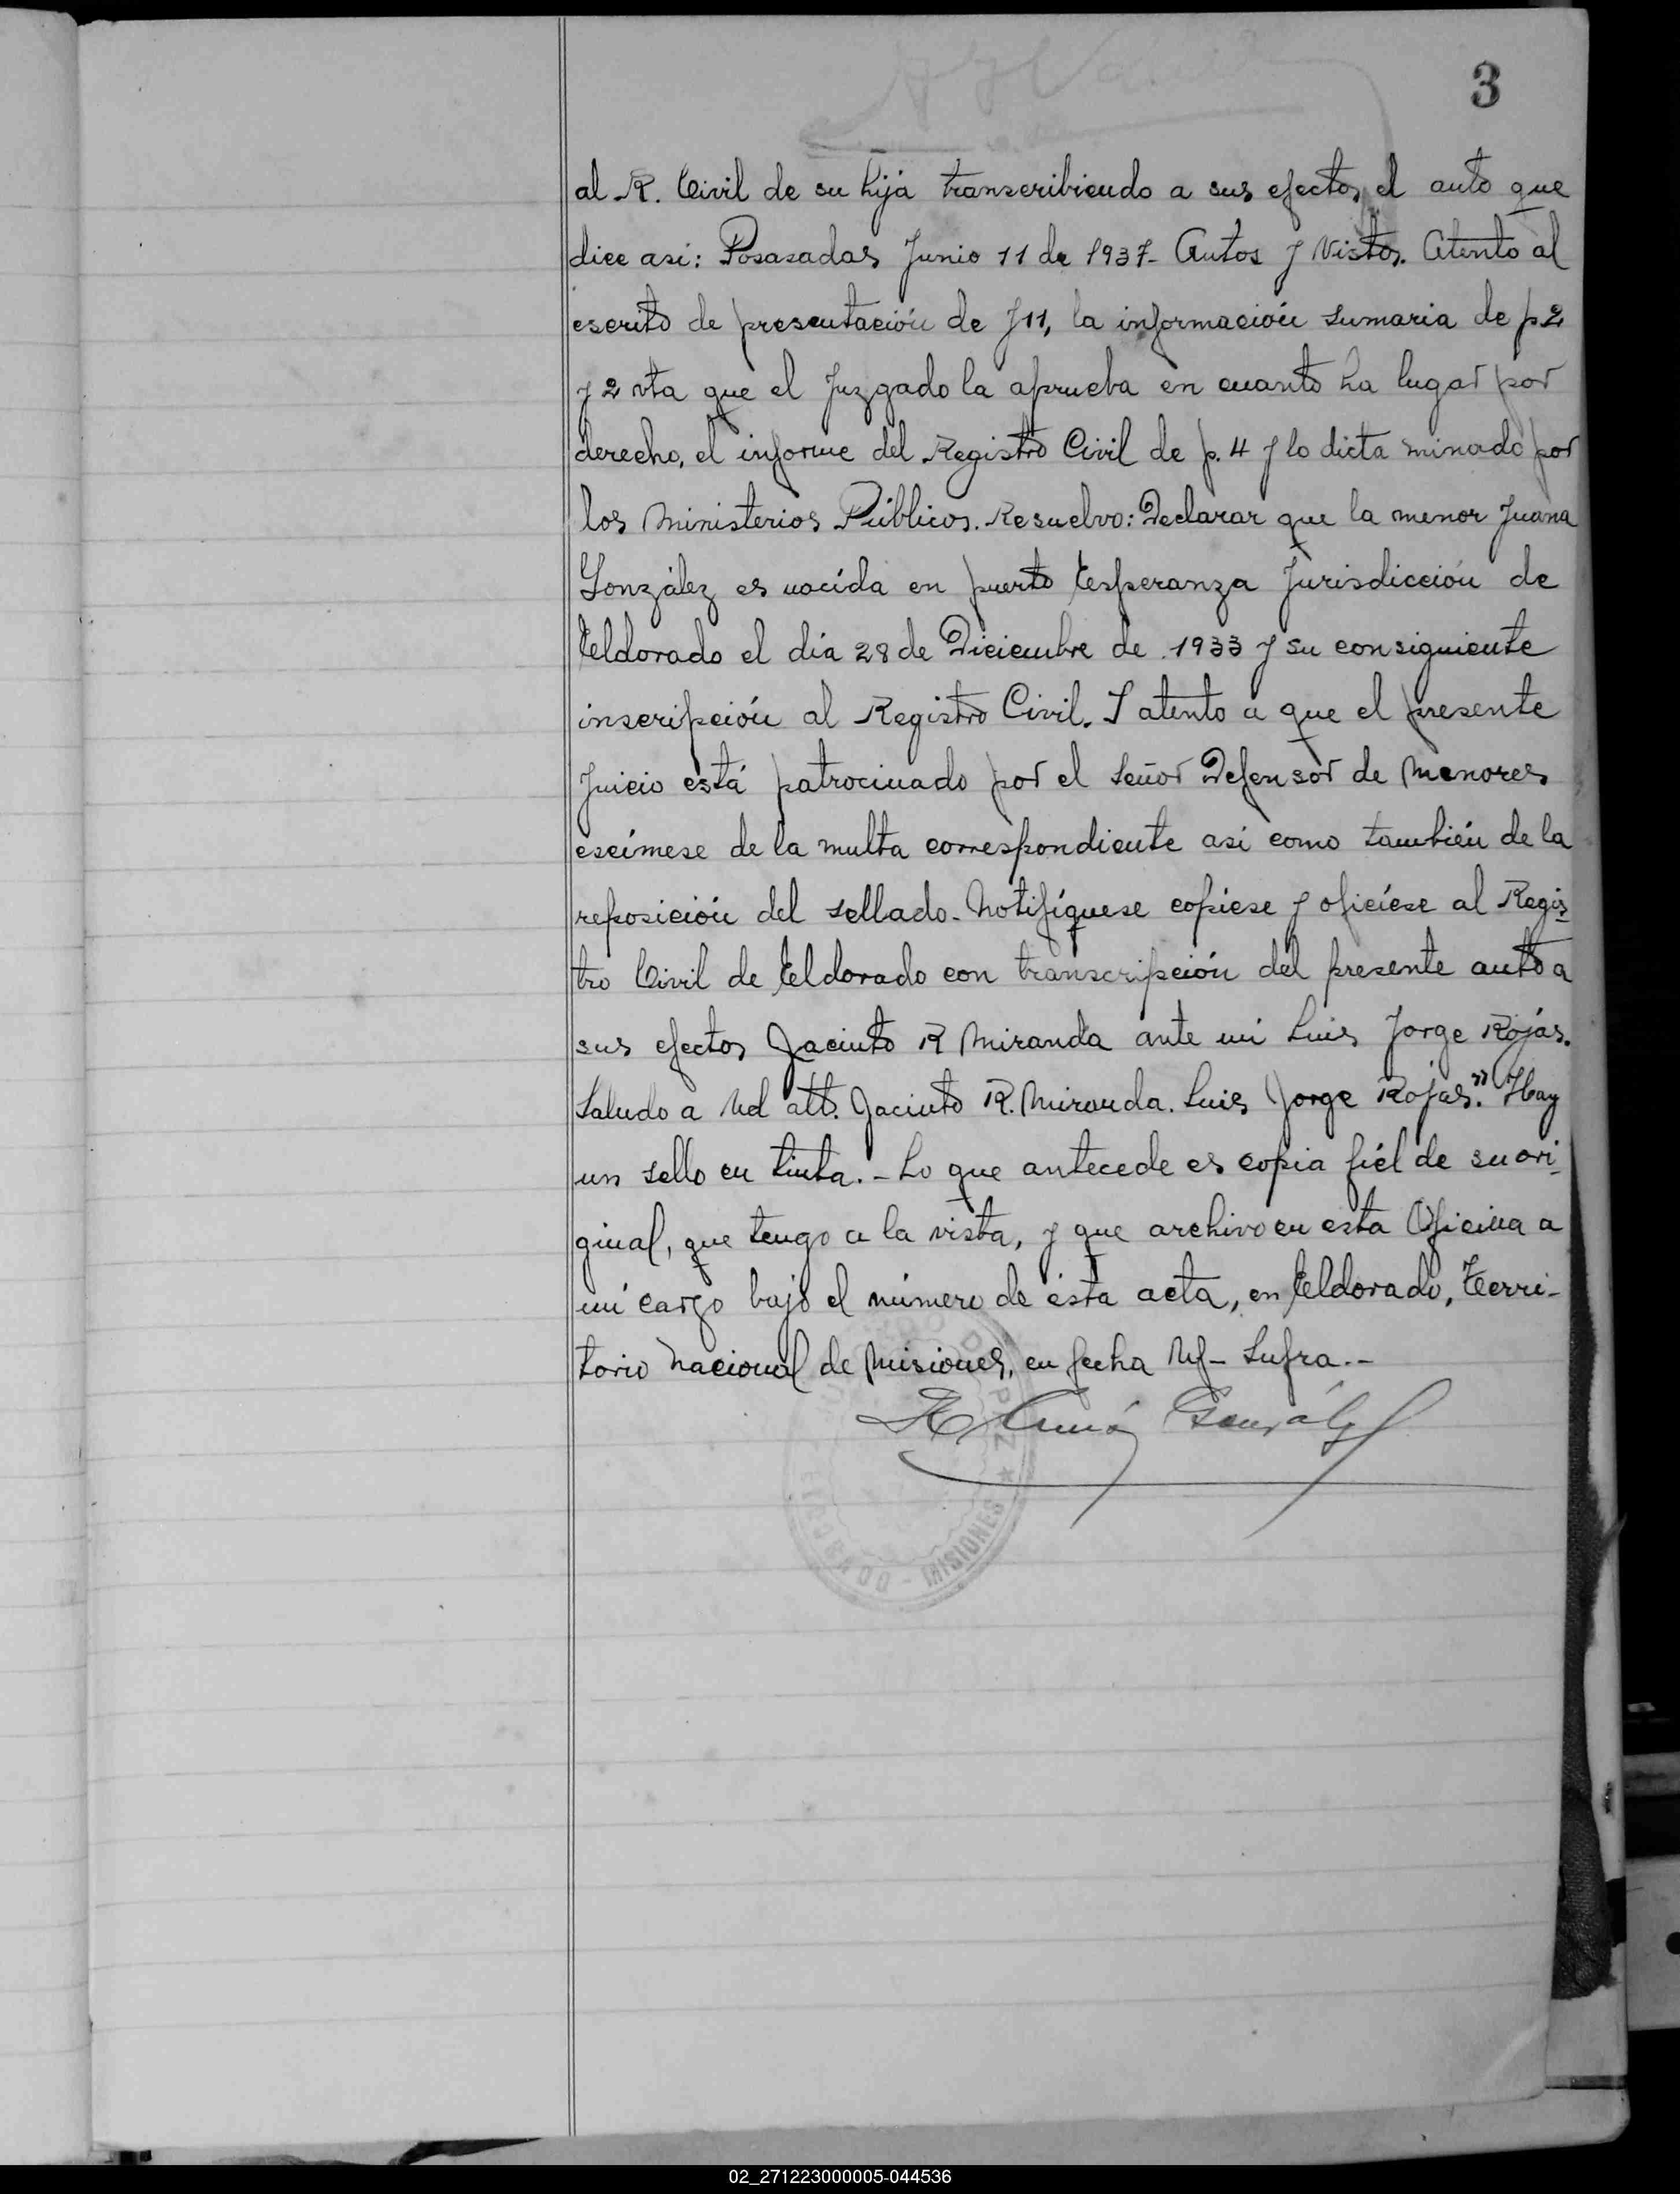 3
al R. Civil de su hija transcribiendo a sus efectos el auto que
dice asi: Posasadas Junio 11 de 1937- Autos y Vistos. Atento al
escrito de presentación de f11, la información sumaria de p2
y 2 vta que el Juzgado la aprueba en cuanto ha lugar por
derecho, el informe del Registro Civil de p. 4 y lo dicta minado por
los Ministerios Públicos. Resuelvo: Declarar que la menor Juana
González es nacida en puerto Esperanza Jurisdicción de
Eldorado el día 28 de Diciembre de 1933 y su consiguiente
inscripción al Registro Civil. Y atento a que el presente
Juicio está patrocinado por el Señor Defensor de Menores
exímese de la multa correspondiente asi como también de la
reposición del sellado- Notifíquese copiese y oficíese al Regis-
tro Civil de Eldorado con transcripción del presente auto a
sus efectos Jacinto R Miranda ante mi Luis Jorge Rojas.
Saludo a Ud att. Jacinto R. Miranda. Luis Jorge Rojas." Hay
un sello en tinta.- Lo que antecede es copia fiél de su ori-
ginal, que tengo a la vista, y que archivo en esta Oficina a
mi cargo bajo el número de ésta acta, en Eldorado, Terri-
torio Nacional de Misiones, en fecha Ut- Supra.-
González
ELDORADO - MISIONES ★
02_271223000005-044536